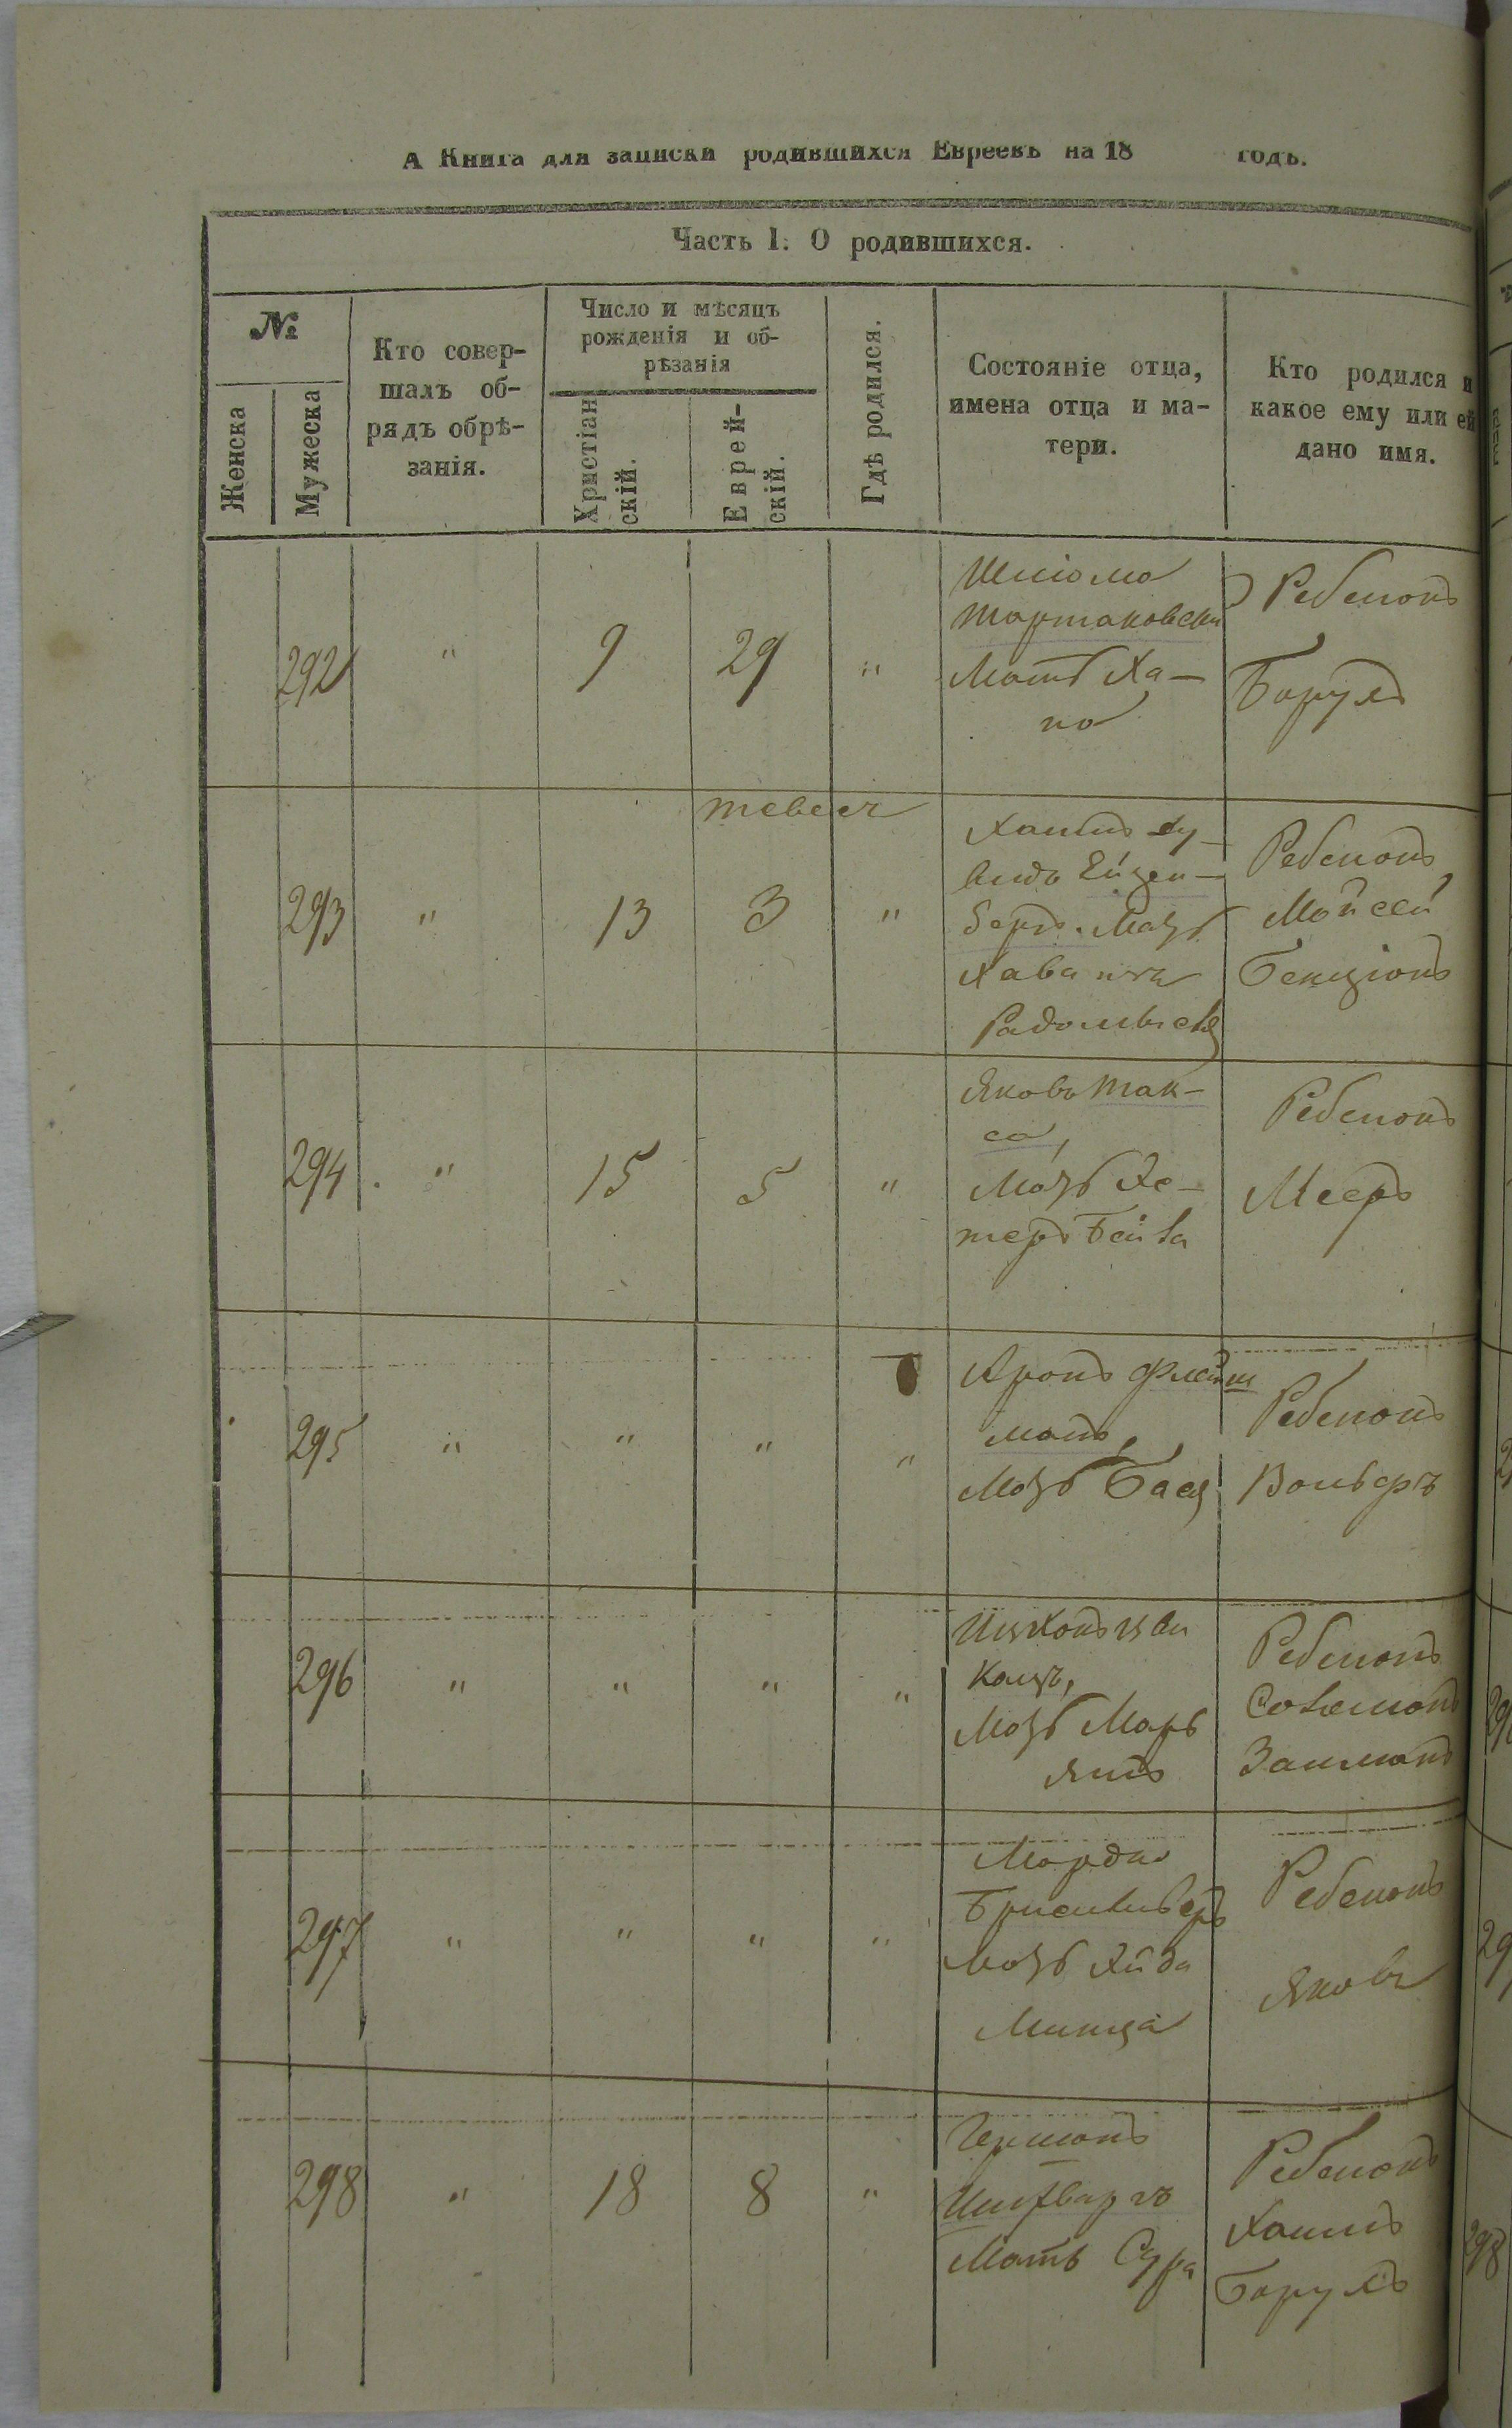 А Книга для записки родившихся Евреевъ на 18 годъ.
Часть I. О родившихся.
№
Женска
Мужеска
Кто совер-
шалъ об-
рядъ обрѣ-
занія.
Число и мѣсяцъ
рожденія и об-
рѣзанія
Христіан
скій.
Еврей-
скій.
Гдѣ родился.
Состояніе отца,
имена отца и ма-
тери.
Кто родился и
какое ему или ей
дано имя.
292 " 9 29 "
Шліома
Тартаковски
Мать Ха-
на
Ребенокъ
Барухъ
тевеса
293 " 13 3 "
Хаимъ
Ейзен-
бергъ. Мать
Хава
Радомысл
Ребенокъ
Мойсей
Бенціонъ
294 " 15 5 "
Яковъ Так-
са,
Мать Эс-
теръ Бейла
Ребенокъ
Мееръ
295 " " " "
Аронъ Флейш
манъ,
Мать Бася
Ребенокъ
Вольфъ
296 " " " "
Ицхокъ Цви
Кацъ,
Мать Марь
ямъ
Ребенокъ
Соломонъ
Залманъ
297 " " " "
Мордко
Мать Хида
Минца
Ребенокъ
Яковъ
298 " 18 8 "
Гершонъ
Шварцъ
Мать Сура
Ребенокъ
Хаимъ
Барухъ